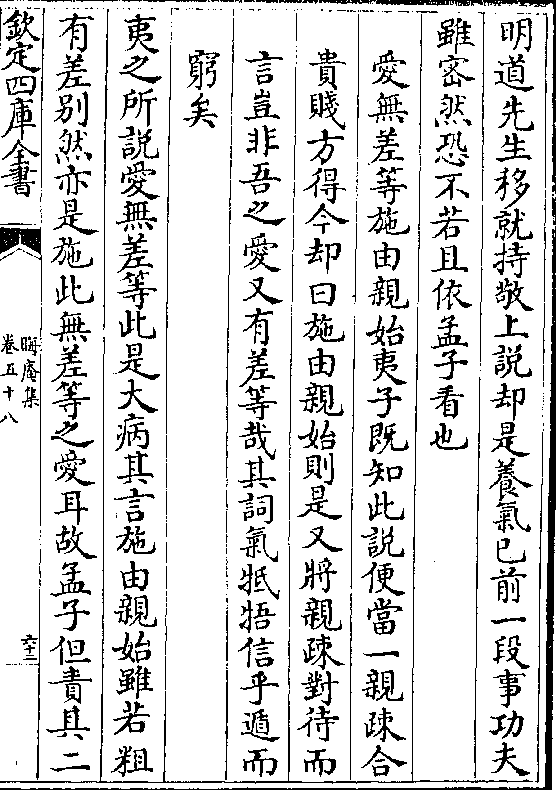 明道先生移就持敬上說却是養氣已前一段事功夫
雖宻然恐不若且依孟子看也
愛無差等施由親始夷子既知此說便當一親疎合
貴賤方得今却曰施由親始則是又將親疎對待而
言豈非吾之愛又有差等哉其詞氣牴牾信乎遁而
窮矣
夷之所說愛無差等此是大病其言施由親始雖若粗
有差别然亦是施此無差等之愛耳故孟子但責其二
欽定四庫全書
晦庵集
卷五十八
六十三